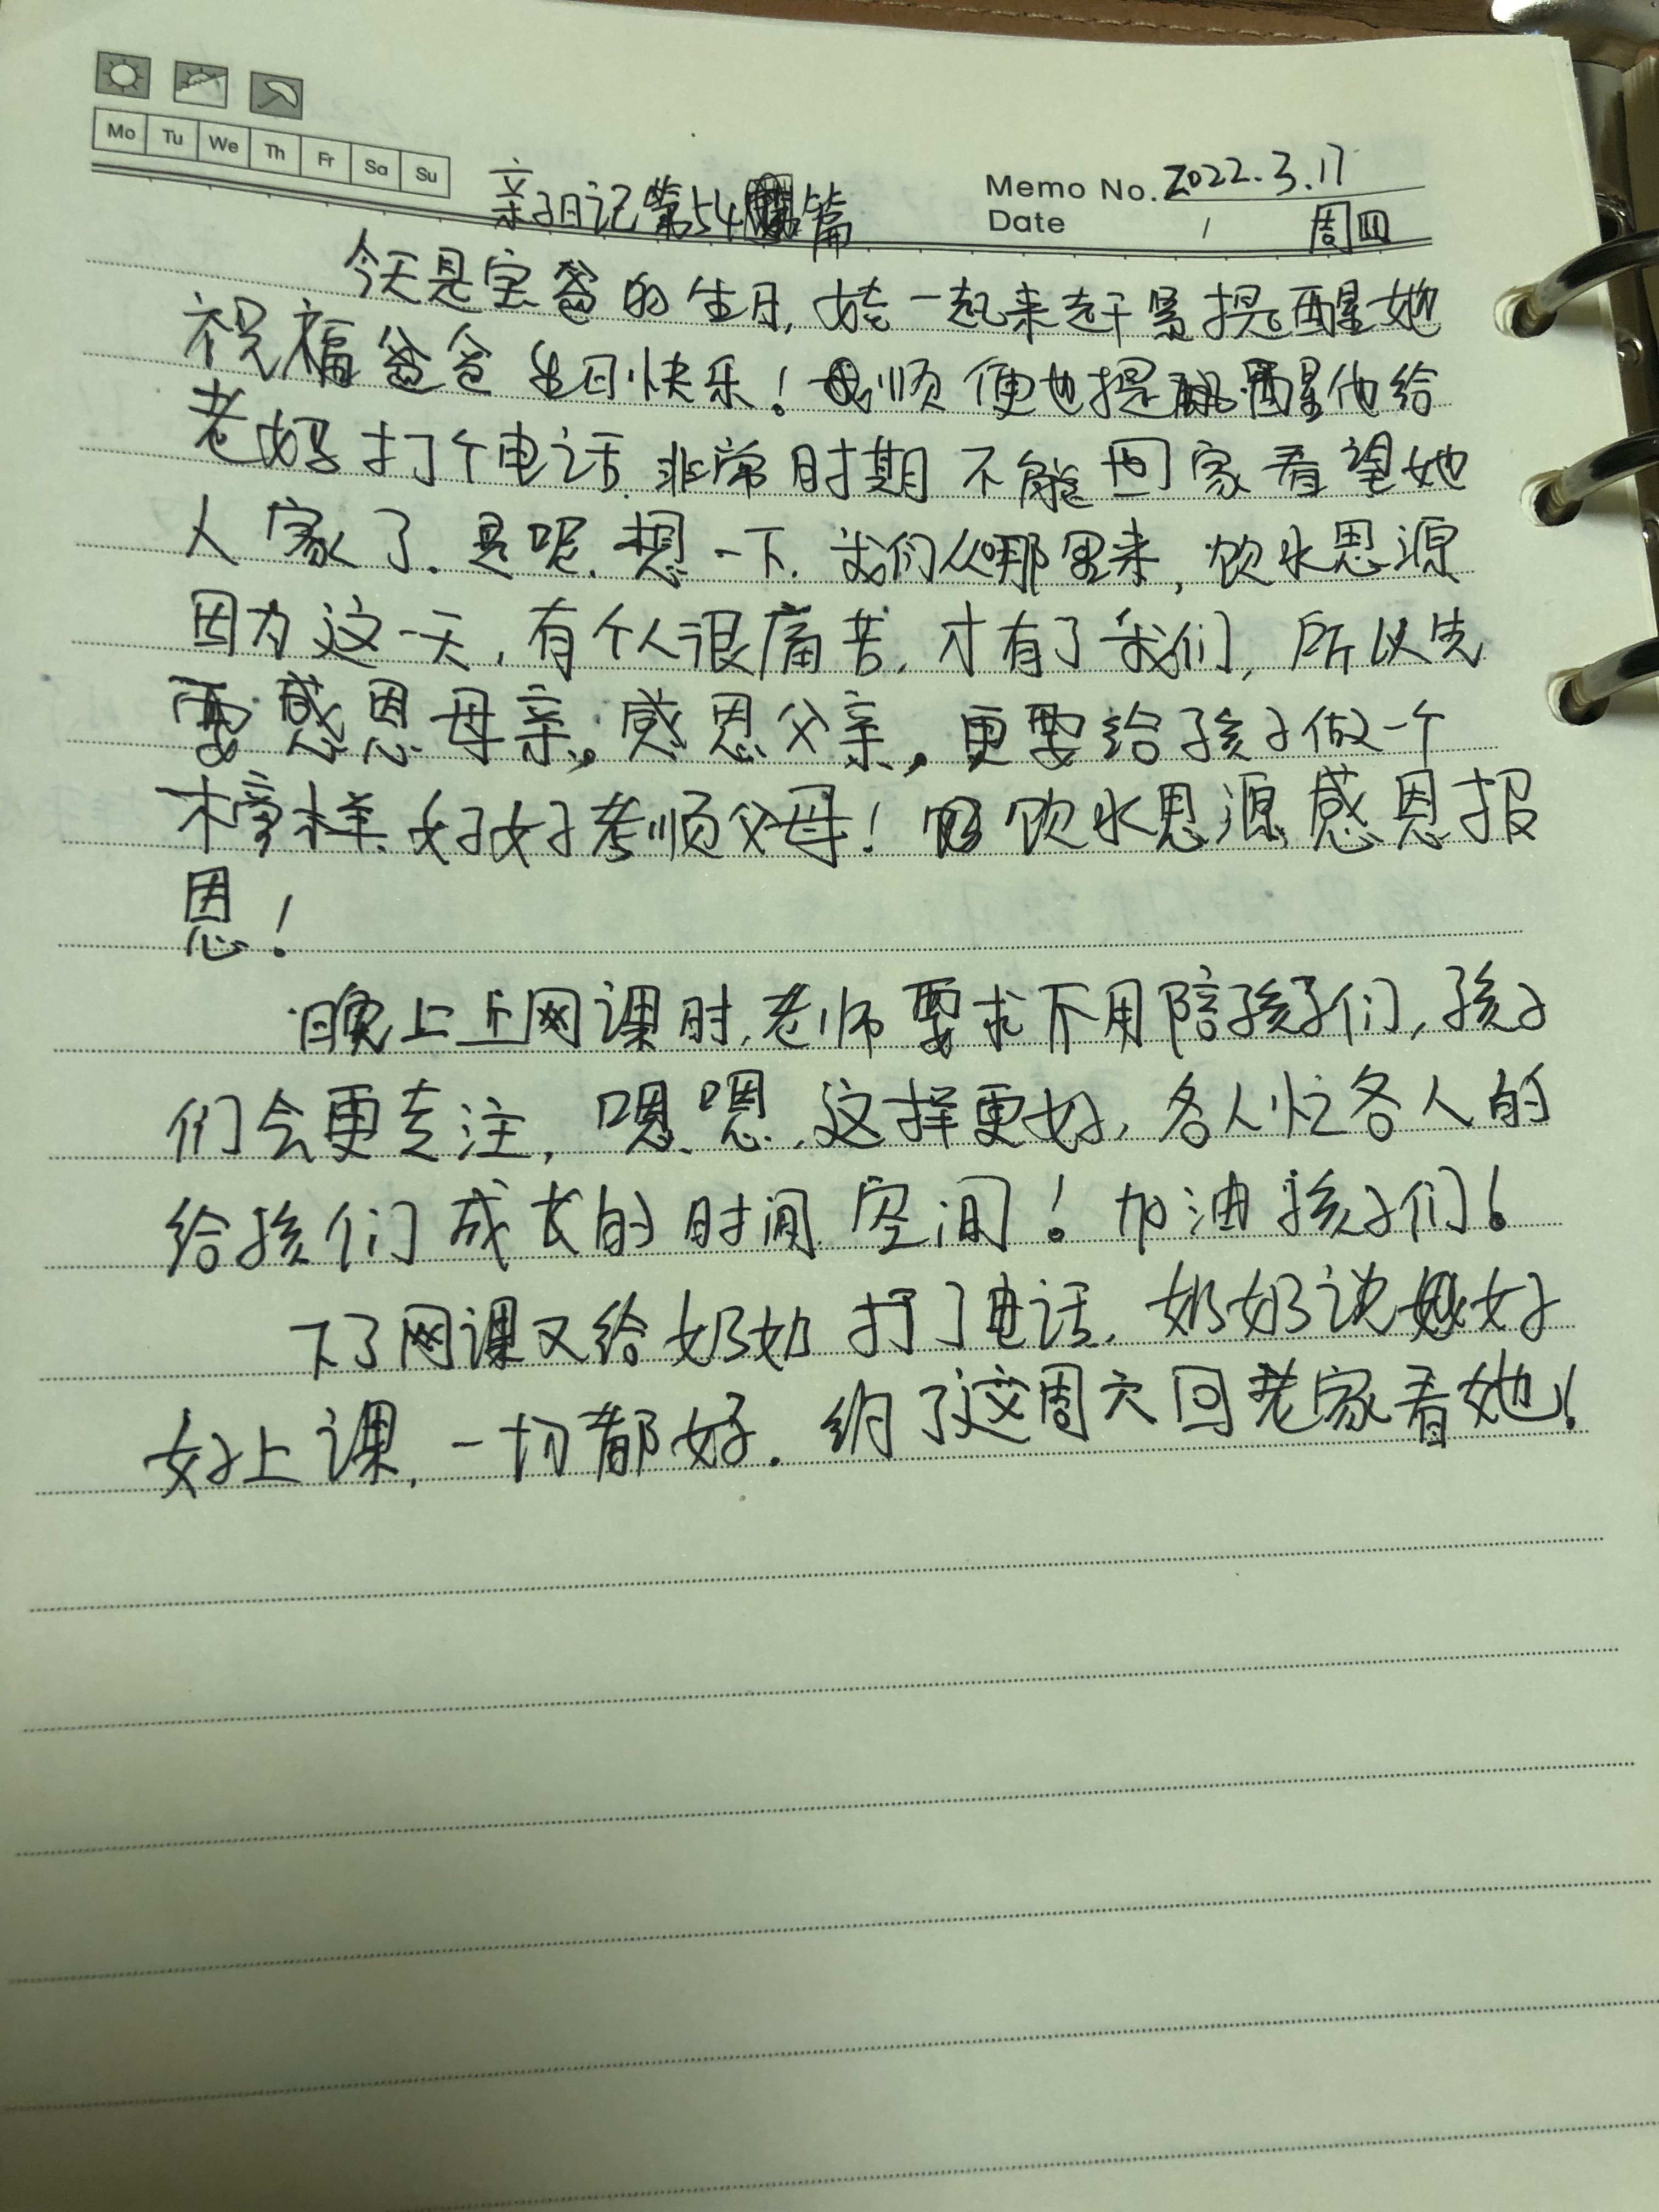 Mo Tu We Th Fr Sa Su
Memo No. 2022.3.17
Date / 周四
亲子日记第54篇
今天是宝爸的生日,娃一起来赶紧提醒她
祝福爸爸生日快乐!顺便也提醒他给
老妈打个电话.非常时期不能回家看望她
人家了.是呢.想一下.我们从哪里来,饮水思源
因为这一天,有个人很痛苦,才有了我们,所以先
要感恩母亲,感恩父亲,更要给孩子做一个
榜样、好好孝顺父母!饮水思源感恩报
恩!
晚上上网课时,老师要求不用陪孩子们,孩子
们会更专注,嗯嗯.这样更好,各人忙各人的
给孩们成长的时间空间!加油孩子们!
下了网课又给奶奶打了电话,奶奶说好
好上课,一切都好.约了这周六回老家看她!